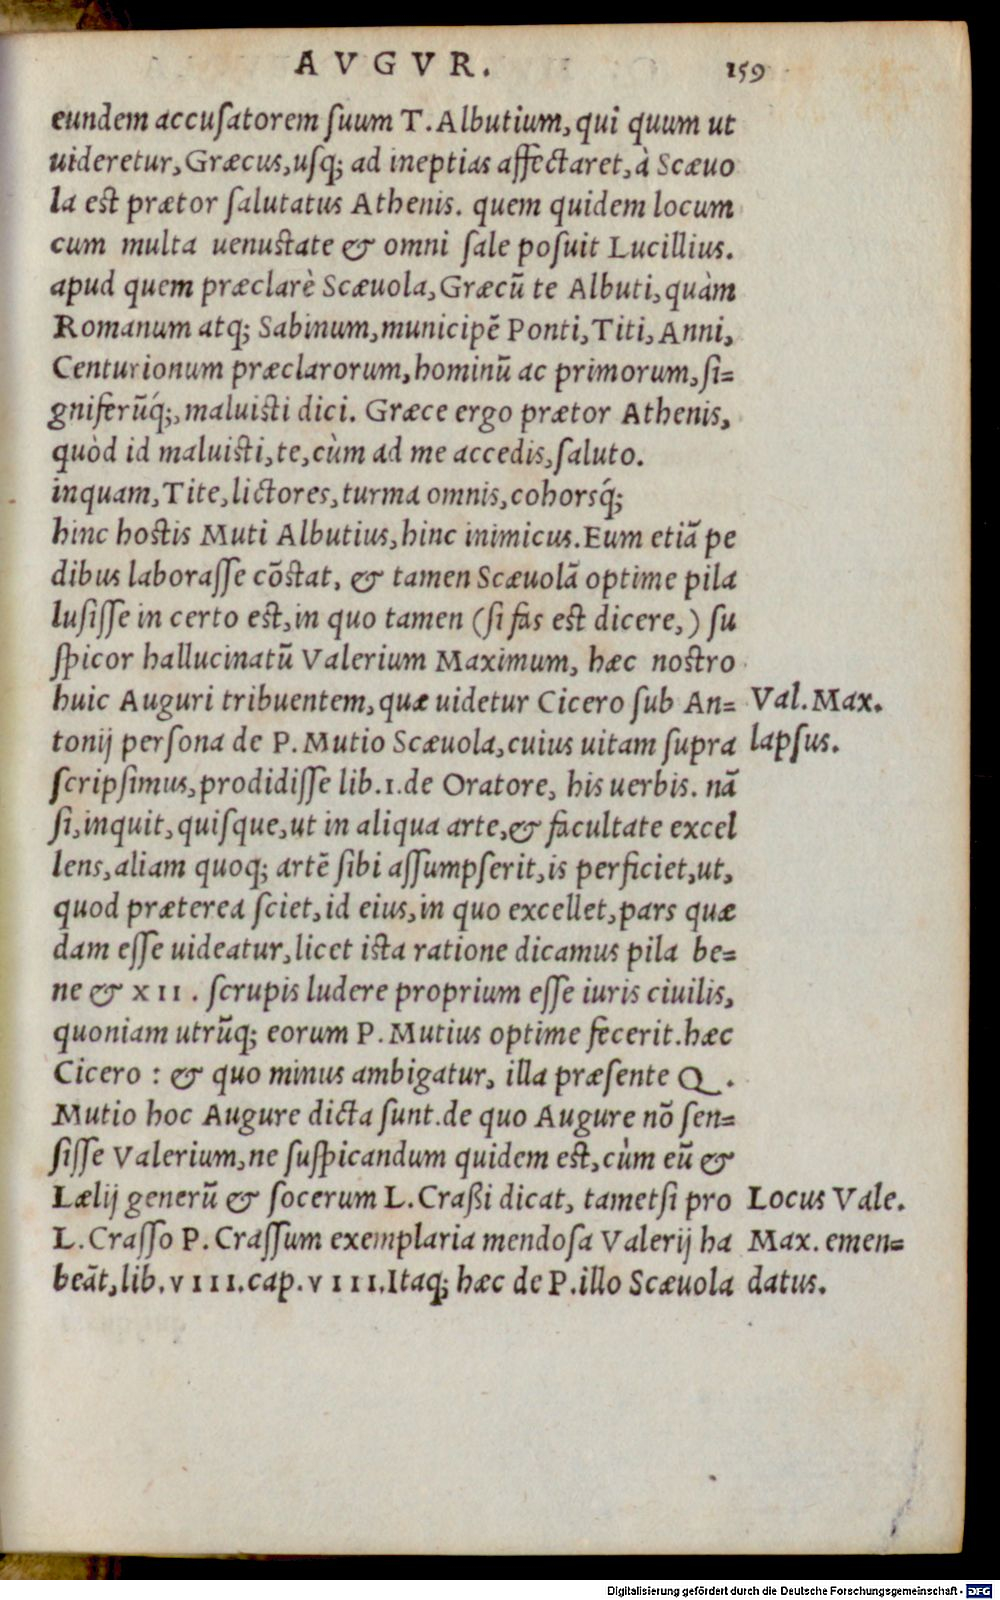 AVGVR. 159
eundem accuſatorem ſuum T. Albutium, qui quum ut
uideretur, Græcus, uſq; ad ineptias affectaret, à Scæuo
la est prætor ſalutatus Athenis. quem quidem locum
cum multa uenustate & omni ſale poſuit Lucillius.
apud quem præclarè Scæuola, Græcū te Albuti, quàm
Romanum atq; Sabinum, municipē Ponti, Titi, Anni,
Centurionum præclarorum, hominū ac primorum, ſi=
gniferūq́;, maluisti dici. Græce ergo prætor Athenis,
quòd id maluisti, te, cùm ad me accedis, ſaluto.
inquam, Tite, lictores, turma omnis, cohorsq́;
hinc hostis Muti Albutius, hinc inimicus. Eum etiā pe
dibus laboraſſe cōstat, & tamen Scæuolā optime pila
luſiſſe in certo est, in quo tamen (ſi fas est dicere,) ſu
ſpicor hallucinatū Valerium Maximum, hæc nostro
huic Auguri tribuentem, quæ uidetur Cicero ſub An= Val. Max.
tonij perſona de P. Mutio Scæuola, cuius uitam ſupra lapſus.
ſcripſimus, prodidiſſe lib. 1. de Oratore, his uerbis. nā
ſi, inquit, quiſque, ut in aliqua arte, & facultate excel
lens, aliam quoq; artē ſibi aſſumpſerit, is perficiet, ut,
quod præterea ſciet, id eius, in quo excellet, pars quæ
dam eſſe uideatur, licet ista ratione dicamus pila be=
ne & XII. ſcrupis ludere proprium eſſe iuris ciuilis,
quoniam utrūq; eorum P. Mutius optime fecerit. hæc
Cicero : & quo minus ambigatur, illa præſente Q.
Mutio hoc Augure dicta ſunt. de quo Augure nō ſen=
ſiſſe Valerium, ne ſuſpicandum quidem est, cùm eū &
Lælij generū & ſocerum L. Craßi dicat, tametſi pro Locus Vale.
L. Craſſo P. Craſſum exemplaria mendoſa Valerij ha Max. emen=
beāt, lib. VIII. cap. VIII. Itaq; hæc de P. illo Scæuola datus.
Digitalisierung gefördert durch die Deutsche Forschungsgemeinschaft - DFG